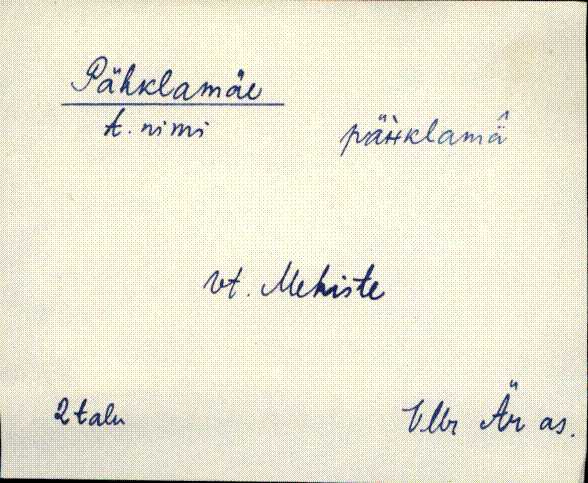 Pähklamäe
t. nimi
päHklamä̂
vt. Mehiste
2 talu
Vllr Är as.